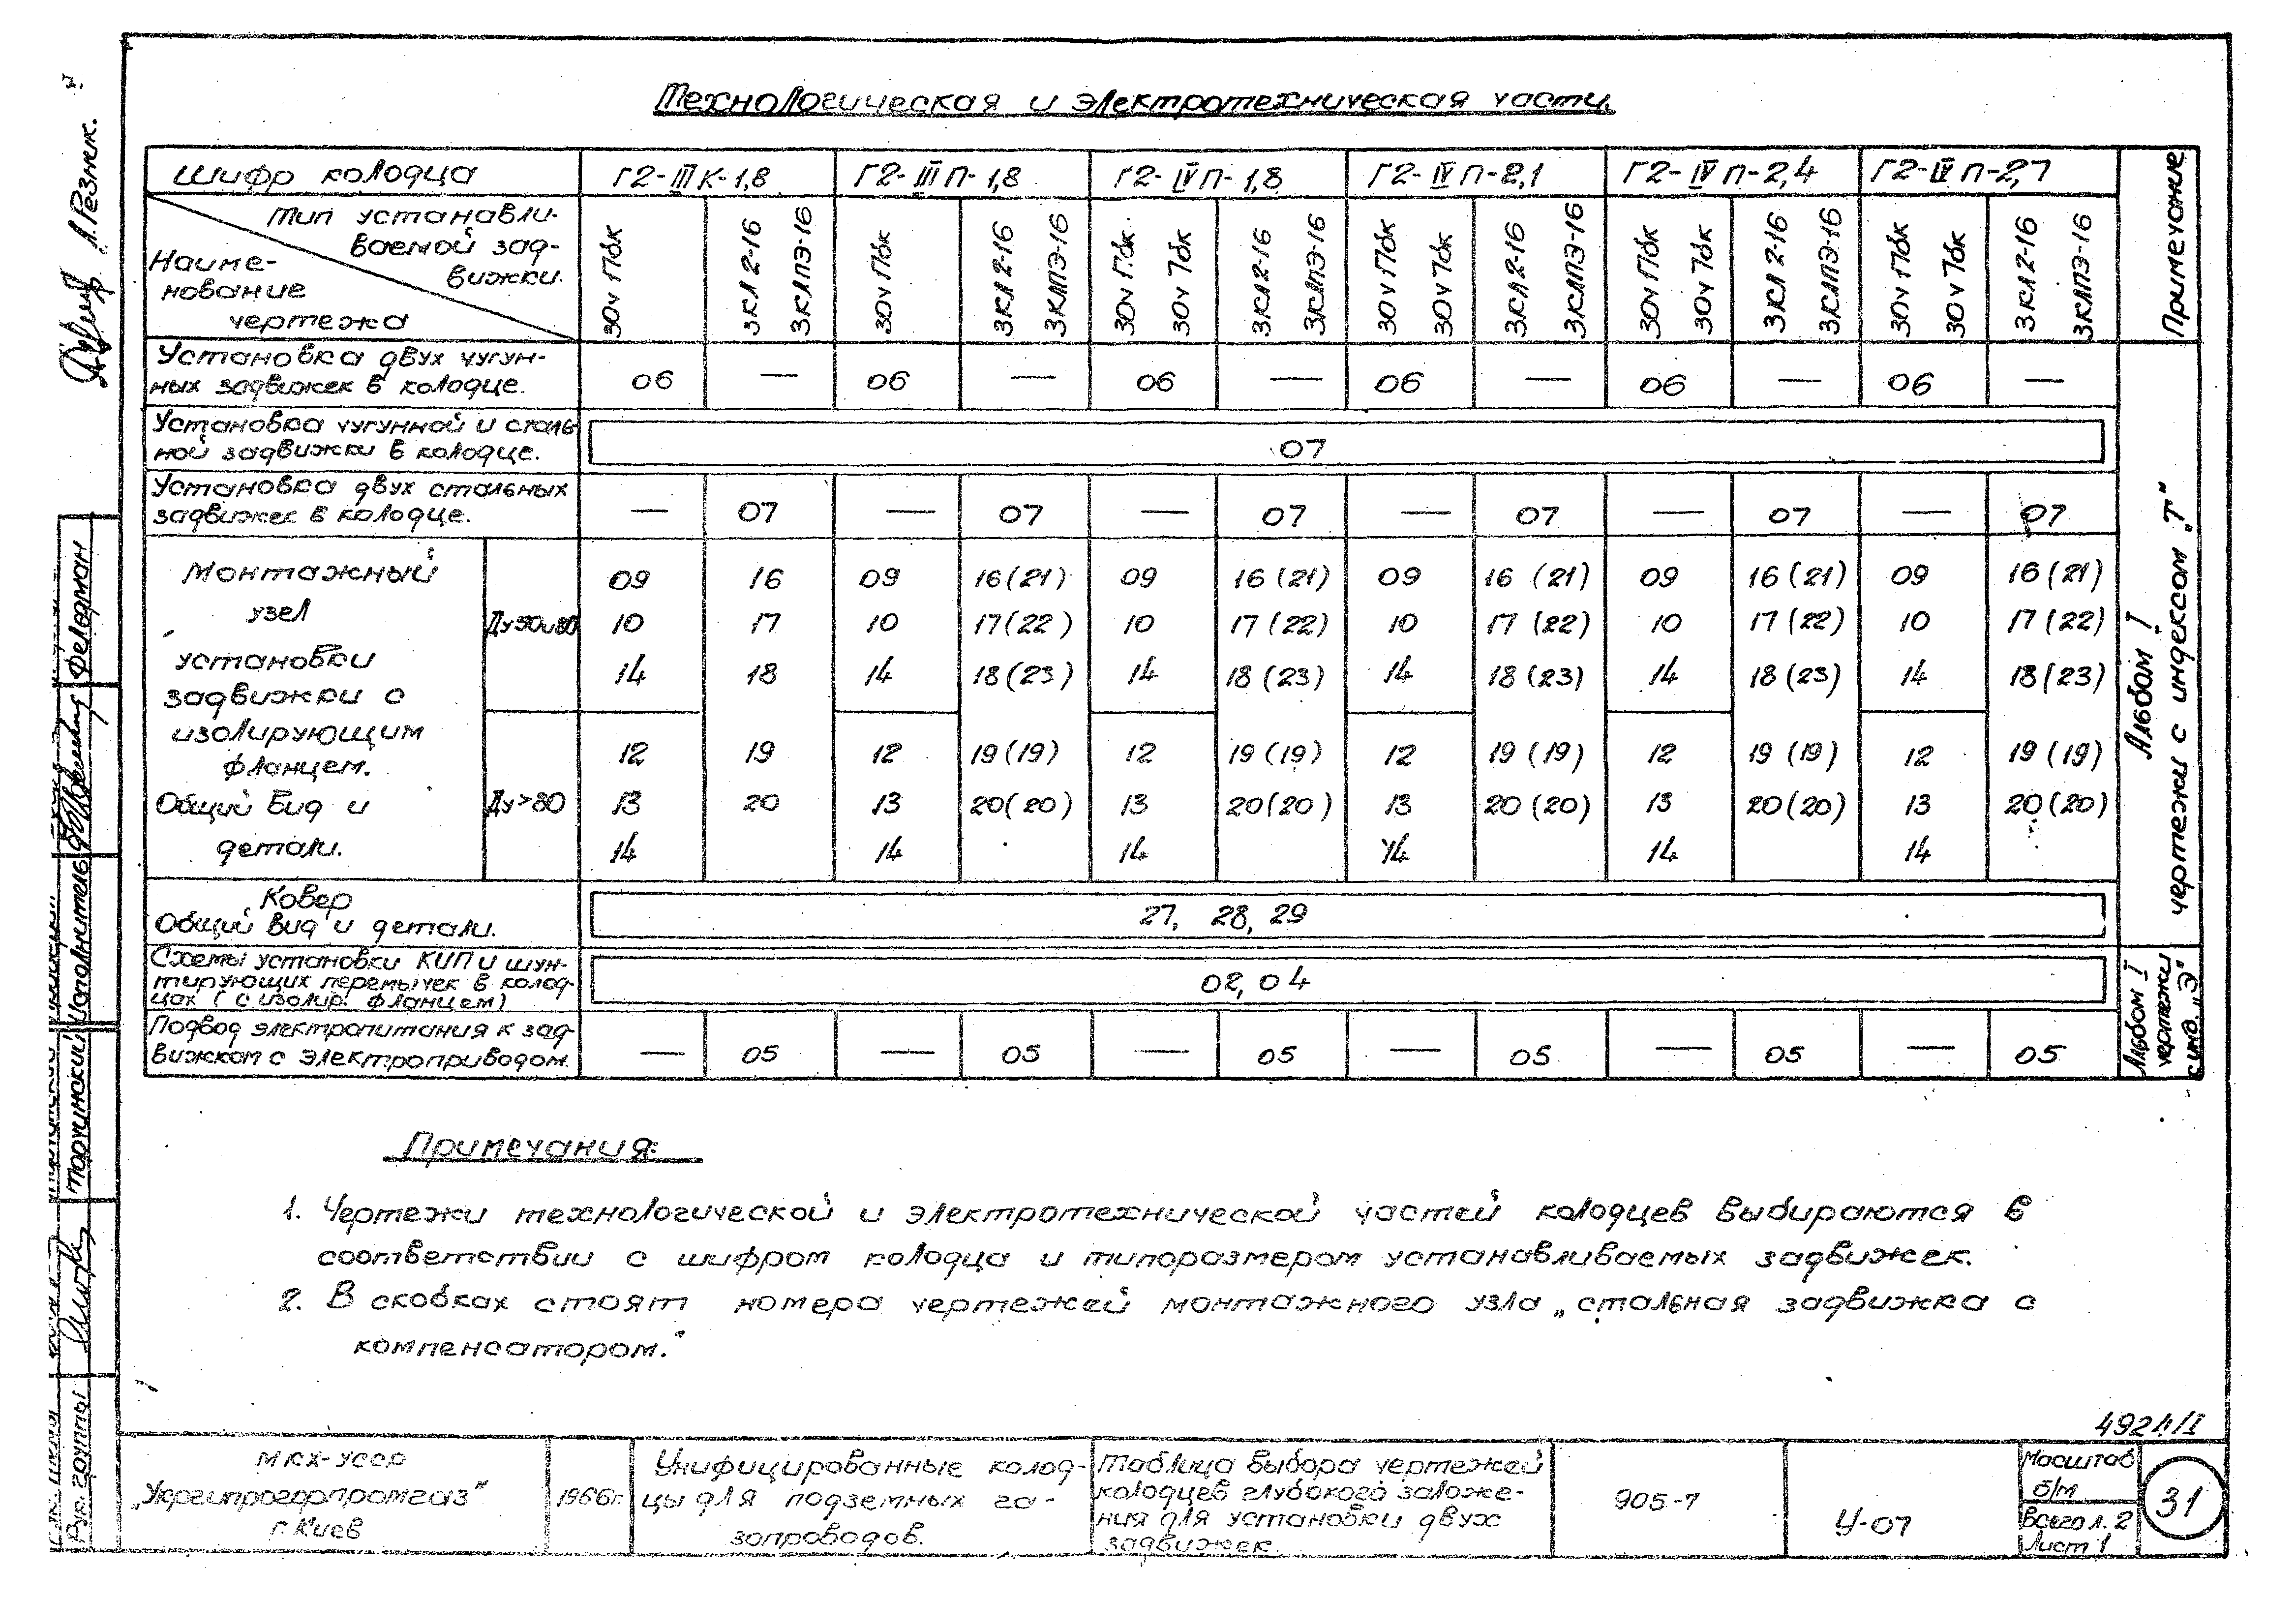 Технологическая и электротехническая части.
Шифр колодца Г2-III К-1,8 Г2-III П-1,8 Г2-IV П-1,8 Г2-IV П-2,1 Г2-IV П-2,4 Г2-IV П-2,7 Примечание
Тип устанавли-
ваемой зад-
вижки.
Наиме-
нование
чертежа
30ч 17бк 3КЛ 2-16 3КЛПЭ-16 30ч 17бк 3КЛ 2-16 3КЛПЭ-16 30ч 17бк 30ч 7бк 3КЛ 2-16 3КЛПЭ-16 30ч 17бк 30ч 7бк 3КЛ 2-16 3КЛПЭ-16 30ч 17бк 30ч 7бк 3КЛ 2-16 3КЛПЭ-16 30ч 17бк 30ч 7бк 3КЛ 2-16 3КЛПЭ-16
Установка двух чугун-
ных задвижек в колодце. 06 — 06 — 06 — 06 — 06 — 06 —
Установка чугунной и сталь-
ной задвижки в колодце. 07
Установка двух стальных
задвижек в колодце. — 07 — 07 — 07 — 07 — 07 — 07
Монтажный
узел
установки
задвижки с
изолирующим
фланцем.
Общий вид и
детали.
Ду50и80
09 16 09 16(21) 09 16(21) 09 16 (21) 09 16(21) 09 16(21)
10 17 10 17(22) 10 17(22) 10 17(22) 10 17(22) 10 17(22)
14 18 14 18(23) 14 18(23) 14 18(23) 14 18(23) 14 18(23)
Ду>80
12 19 12 19(19) 12 19(19) 12 19(19) 12 19(19) 12 19(19)
13 20 13 20(20) 13 20(20) 13 20(20) 13 20(20) 13 20(20)
14 14 14 14 14 14
Ковер
Общий вид и детали. 27, 28, 29
Схемы установки КИП и шун-
тирующих перемычек в колод-
цах (с изолир. фланцем) 02, 04
Подвод электропитания к зад-
вижкам с электроприводом. — 05 — 05 — 05 — 05 — 05 — 05
Альбом I
чертежи с индексом „Т"
Альбом I
чертежи
с инд. „Э"
Примечания:
1. Чертежи технологической и электротехнической частей колодцев выбираются в
соответствии с шифром колодца и типоразмером устанавливаемых задвижек.
2. В скобках стоят номера чертежей монтажного узла „стальная задвижка с
компенсатором."
4924/I
МКХ-УССР
„Укргипрогорпромгаз"
г. Киев
1966г.
Унифицированные колод-
цы для подземных га-
зопроводов.
Таблица выбора чертежей
колодцев глубокого заложе-
ния для установки двух
задвижек.
905-7
У-07
Масштаб
б/м
Всего л. 2
Лист 1
31
Л. Резник.
Фельдман
Исполнитель
Торчинский
Рук. группы